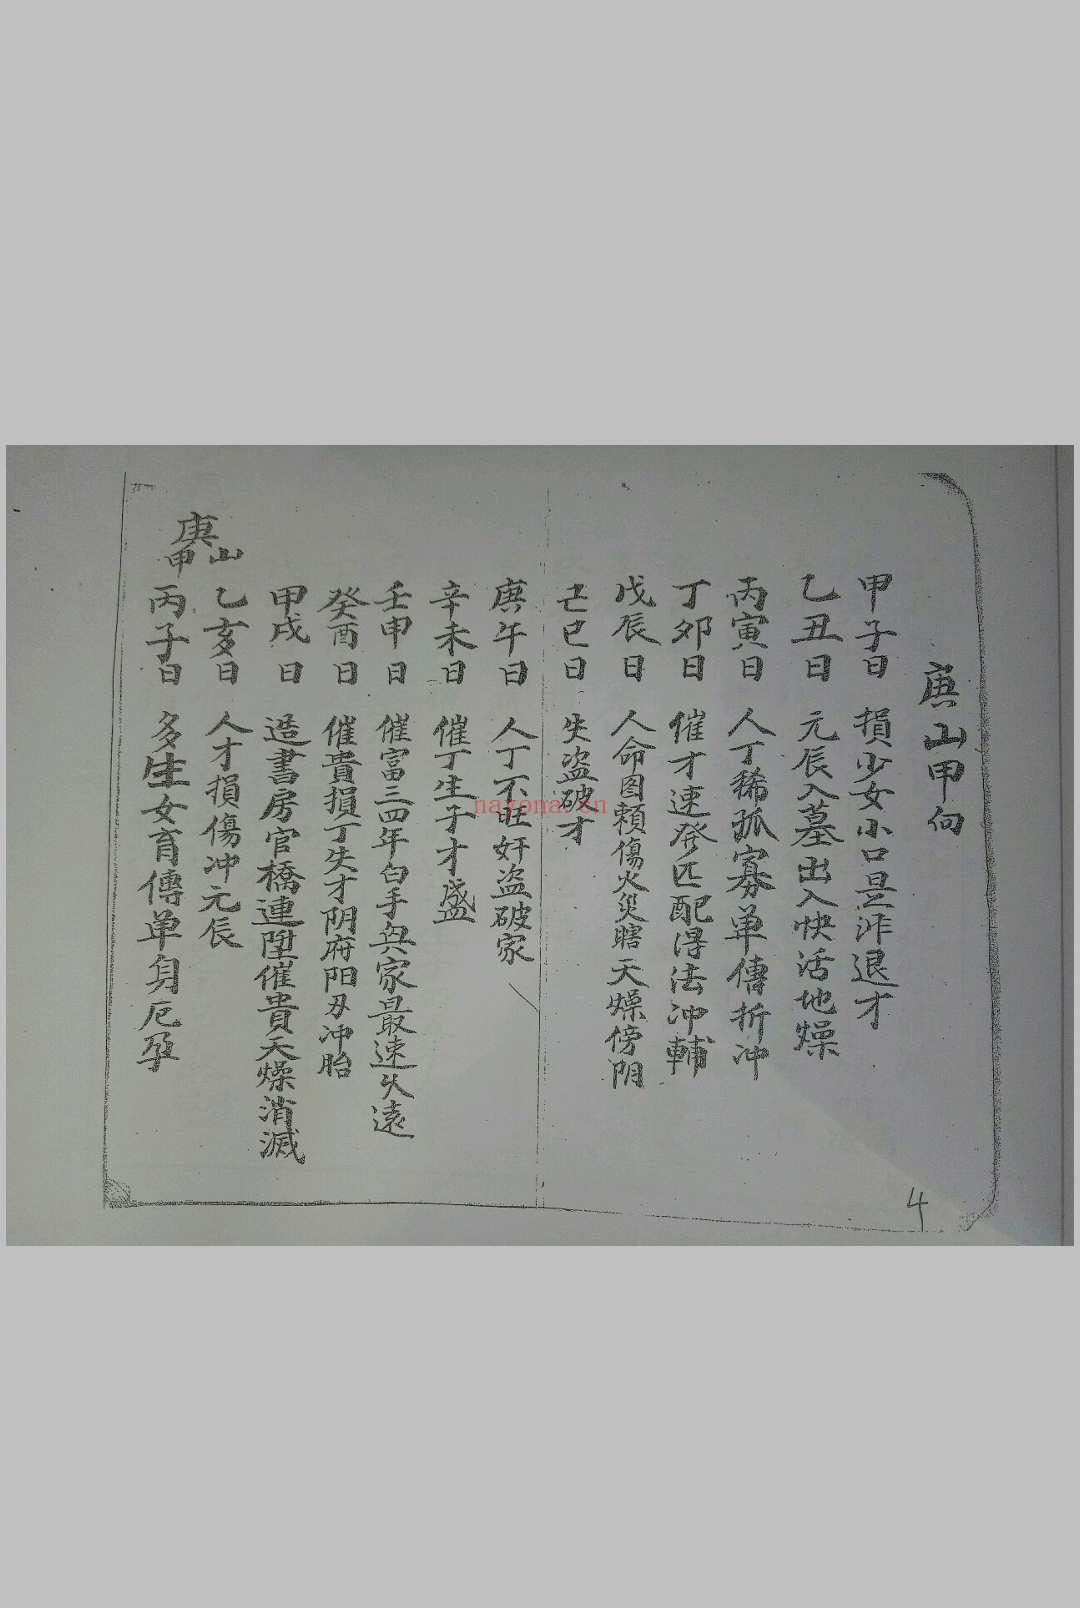 庚山甲向
甲子日 損少女小口是非退才
乙丑日 元辰入墓出入快活地燥
丙寅日 人丁稀孤寡单傳折冲
丁卯日 催才速發匹配得法冲輔
戊辰日 人命图賴傷火災瞎天燥傍阴
己巳日 失盗破才
庚午日 人丁不旺奸盗破家
辛未日 催丁生子才盛
壬申日 催富三四年白手興家最速久遠
癸酉日 催貴損丁失才阴府阳刃冲胎
甲戌日 造書房官橋連陞催貴天燥消滅
乙亥日 人才損傷冲元辰
丙子日 多生女育傳单身厄孕
庚山
甲
4
nayona.cn